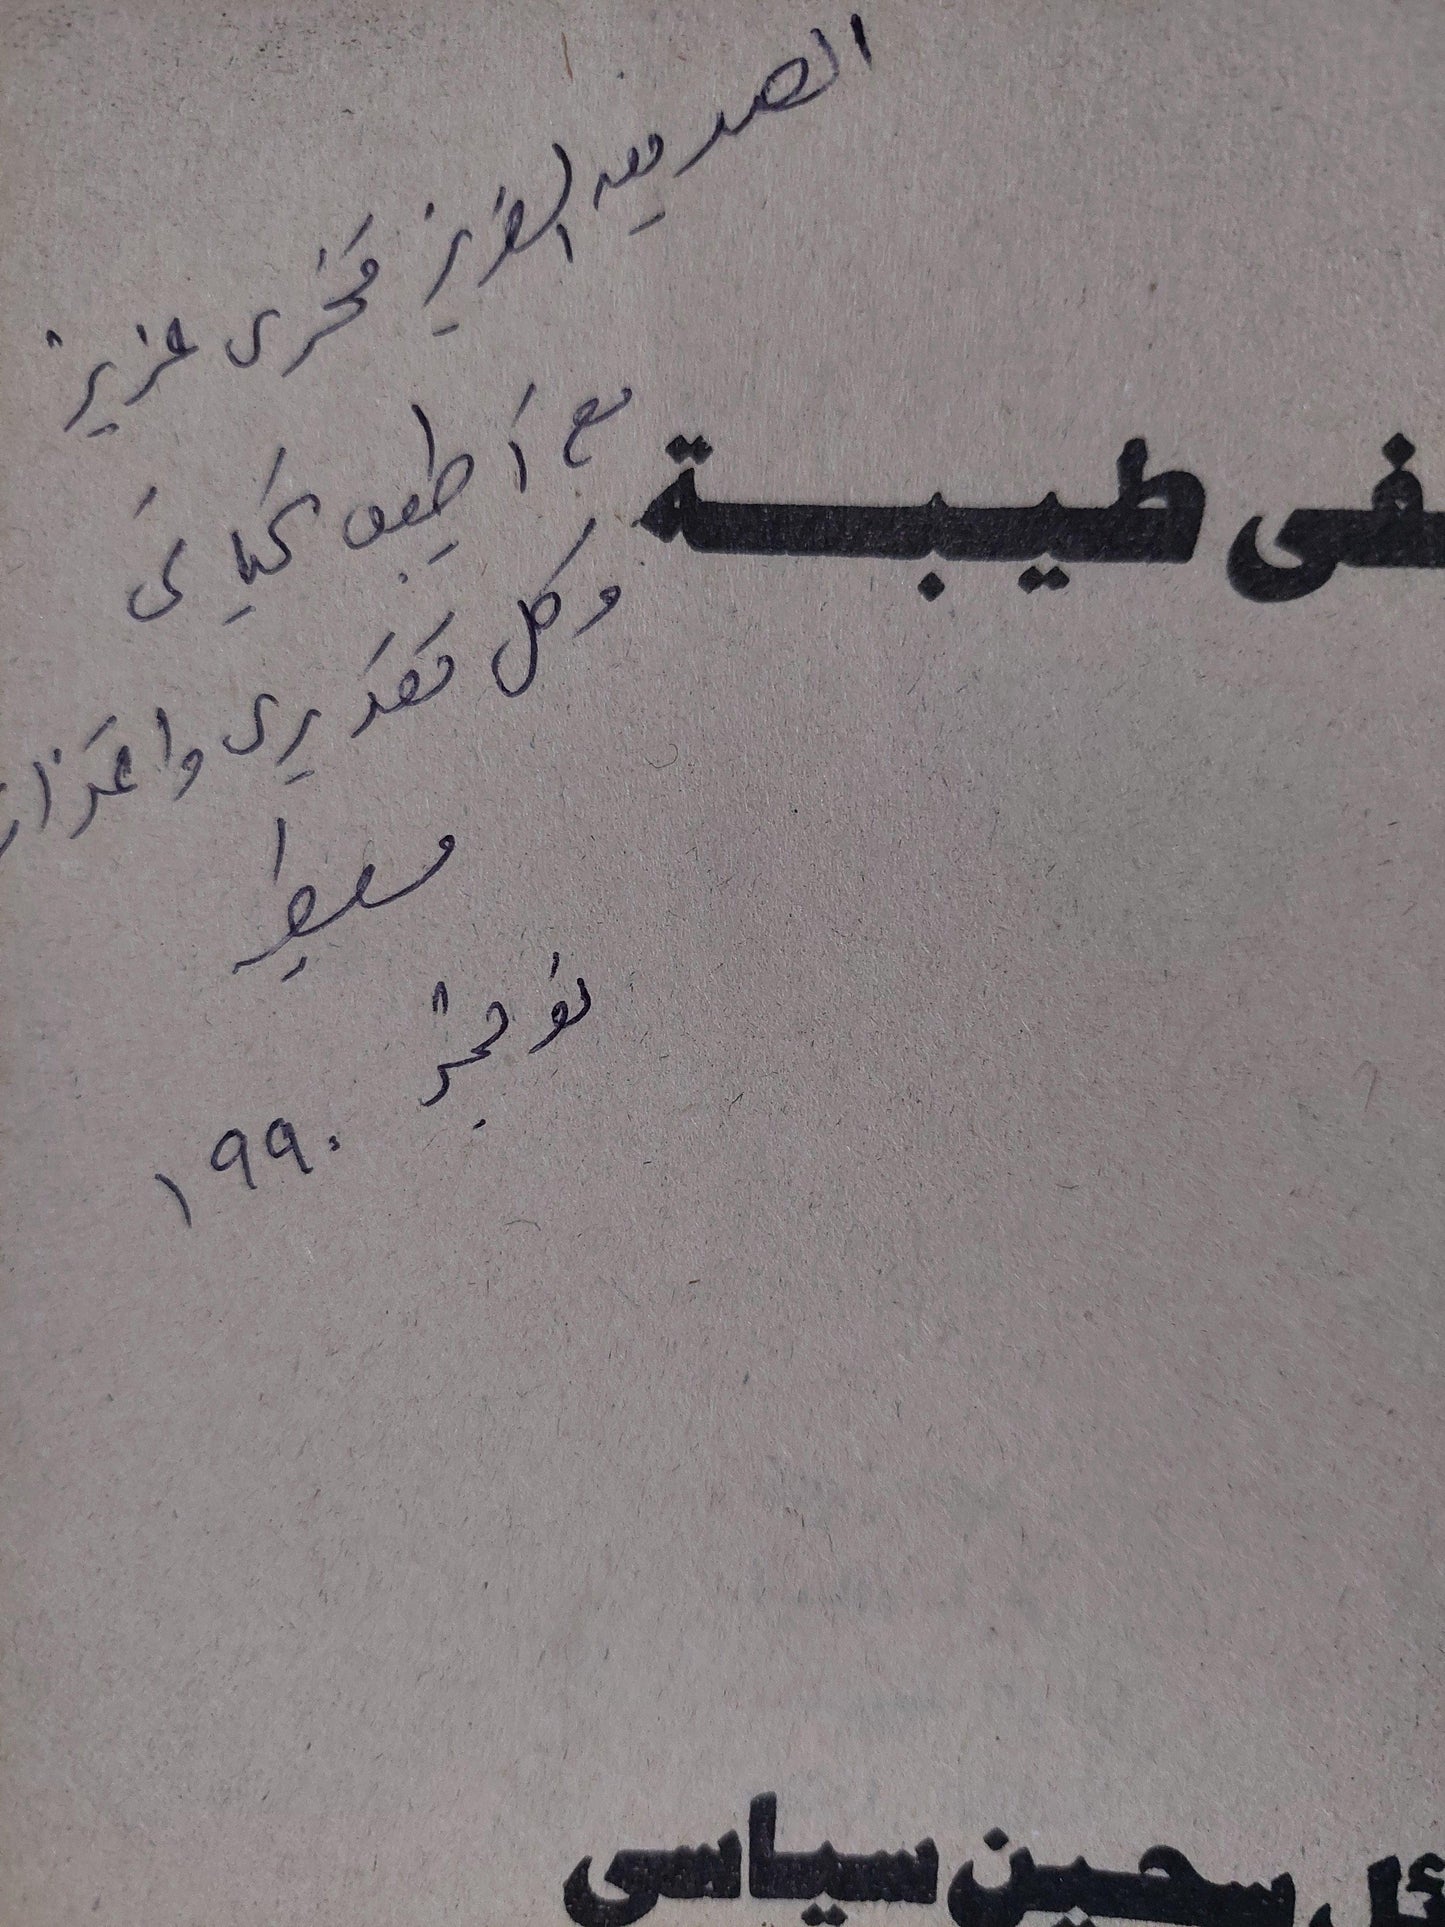 الصديق العزيز فخرى عزيز
مع أطيب تحياتى
وكل تقديرى واعتزاز
نوفمبر
١٩٩٠
فى طيبة
ئل سجين سياسى